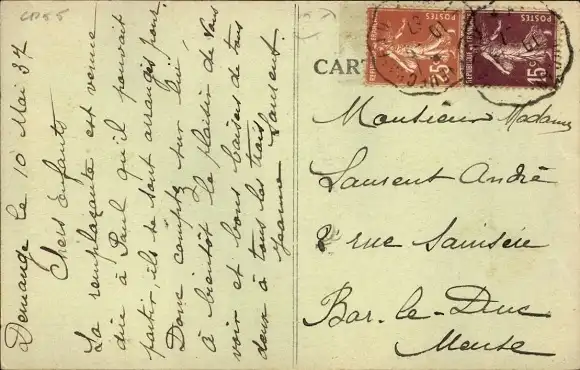 CP55
Demange le 10 Mai 37
Chers Enfants
La remplaçante est venue
dire à Paul qu'il pouvait
partir, ils se sont arrangés pour
Donc comptez sur lui
à bientôt le plaisir de vous
voir et bons baisers de tous
deux à tous les trois
Jeanne Laurent
CAR
POSTES
REPUBLIQUE FRANÇAISE
15c
POSTES
REPUBLIQUE FRANÇAISE
15c
Monsieur Madame
Laurent André
rue
Bar-le-Duc
Meuse